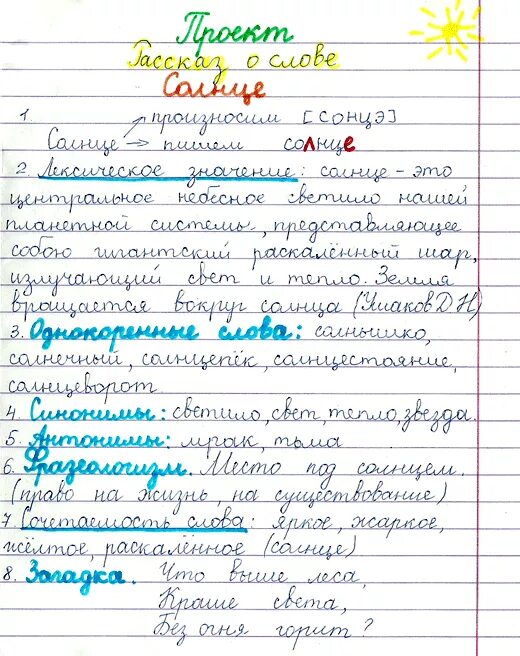 Проект
Рассказ о слове
Солнце
1. произносим [СОНЦЭ]
Солнце → пишем солнце
2. Лексическое значение: солнце – это
центральное небесное светило нашей
планетной системы, представляющее
собою гигантский раскалённый шар,
излучающий свет и тепло. Земля
вращается вокруг солнца (Ушаков Д Н)
3. Однокоренные слова: солнышко,
солнечный, солнцепёк, солнцестояние,
солнцеворот
4. Синонимы: светило, свет, тепло, звезда.
5. Антонимы: мрак, тьма
6. Фразеологизм. Место под солнцем.
(право на жизнь, на существование)
7. Сочетаемость слова: яркое, жаркое,
жёлтое, раскалённое (солнце)
8. Загадка. Что выше леса,
Краше света,
Без огня горит?